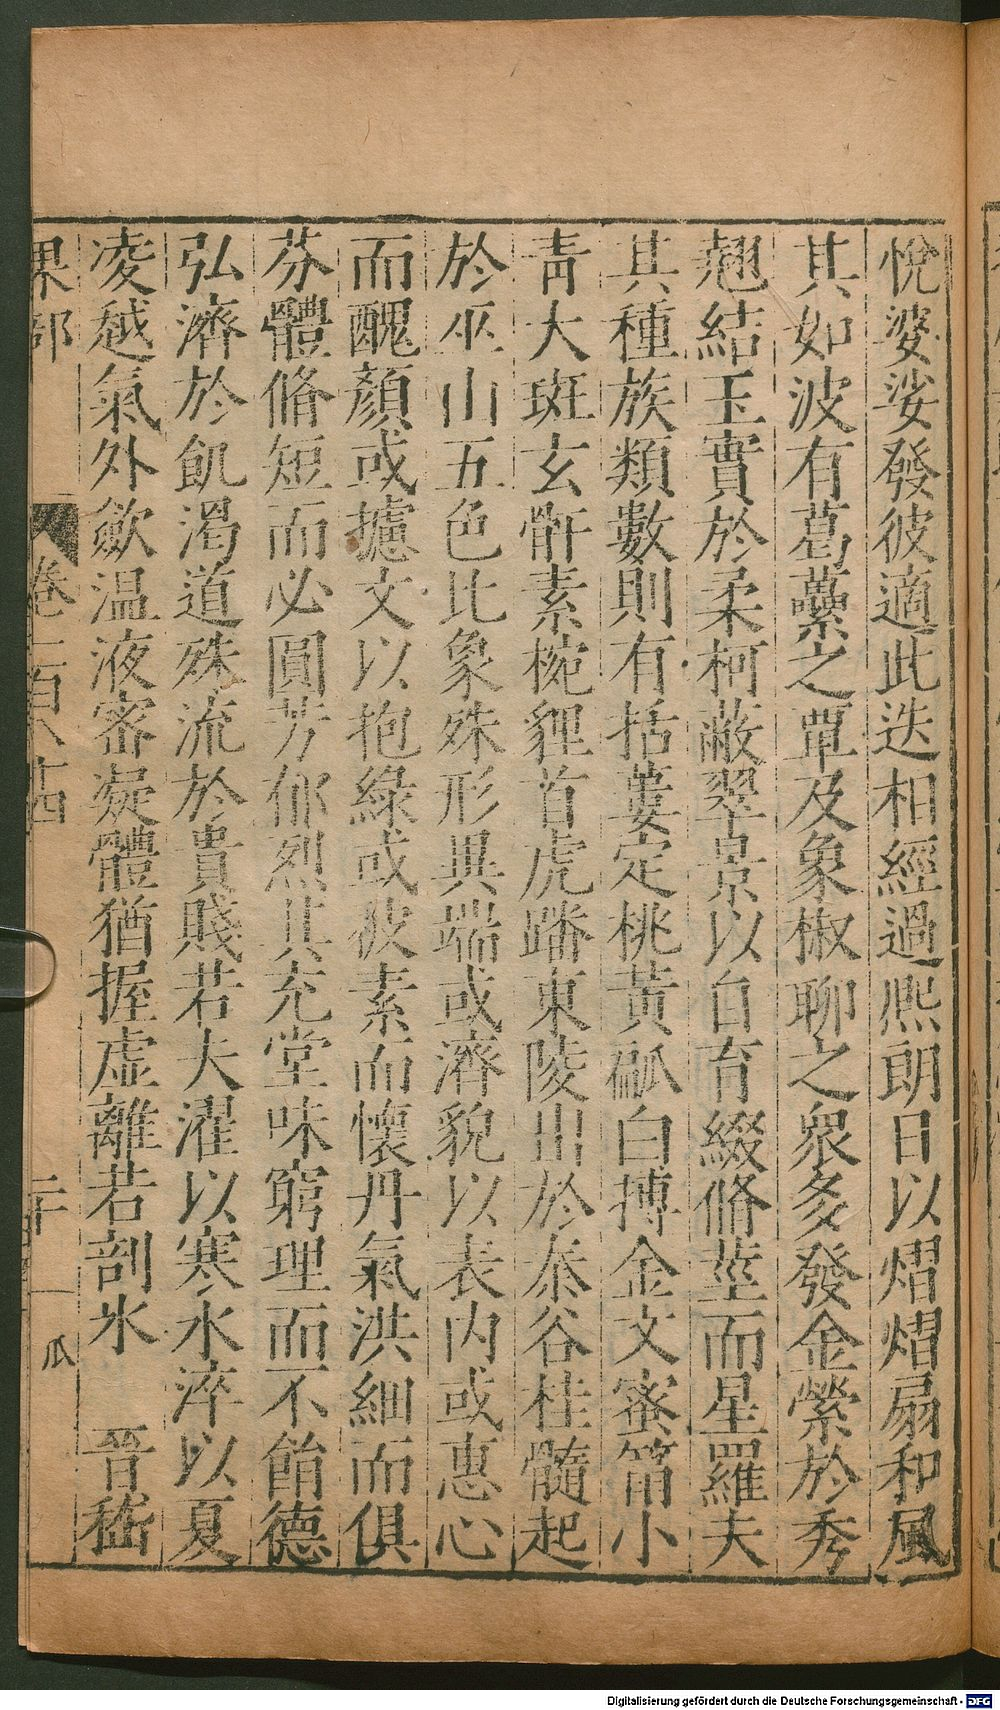 悅婆娑發彼適此迭相經過熙朗日以熠熠扇和風
其如波有葛虆之覃及象椒聊之衆多發金縈於秀
翹結玉實於柔柯蔽翠景以自育綴脩莖而星羅夫
其種族類數則有括蔞定桃黃㼐白摶金文蜜筩小
青大斑玄骭素椀貍首虎蹯東陵出於泰谷桂髓起
於巫山五色比象殊形異端或濟貌以表內或惠心
而醜顏或攄文以抱綠或披素而懷丹氣洪細而俱
芬體脩短而必圓芳郁烈其充堂味窮理而不餶德
弘濟於飢渴道殊流於貴賤若夫濯以寒水淬以夏
凌越氣外歛温液密凝體猶握虛離若剖氷　晉嵇
果部　卷一百八十四　二十　瓜
Digitalisierung gefördert durch die Deutsche Forschungsgemeinschaft - DFG